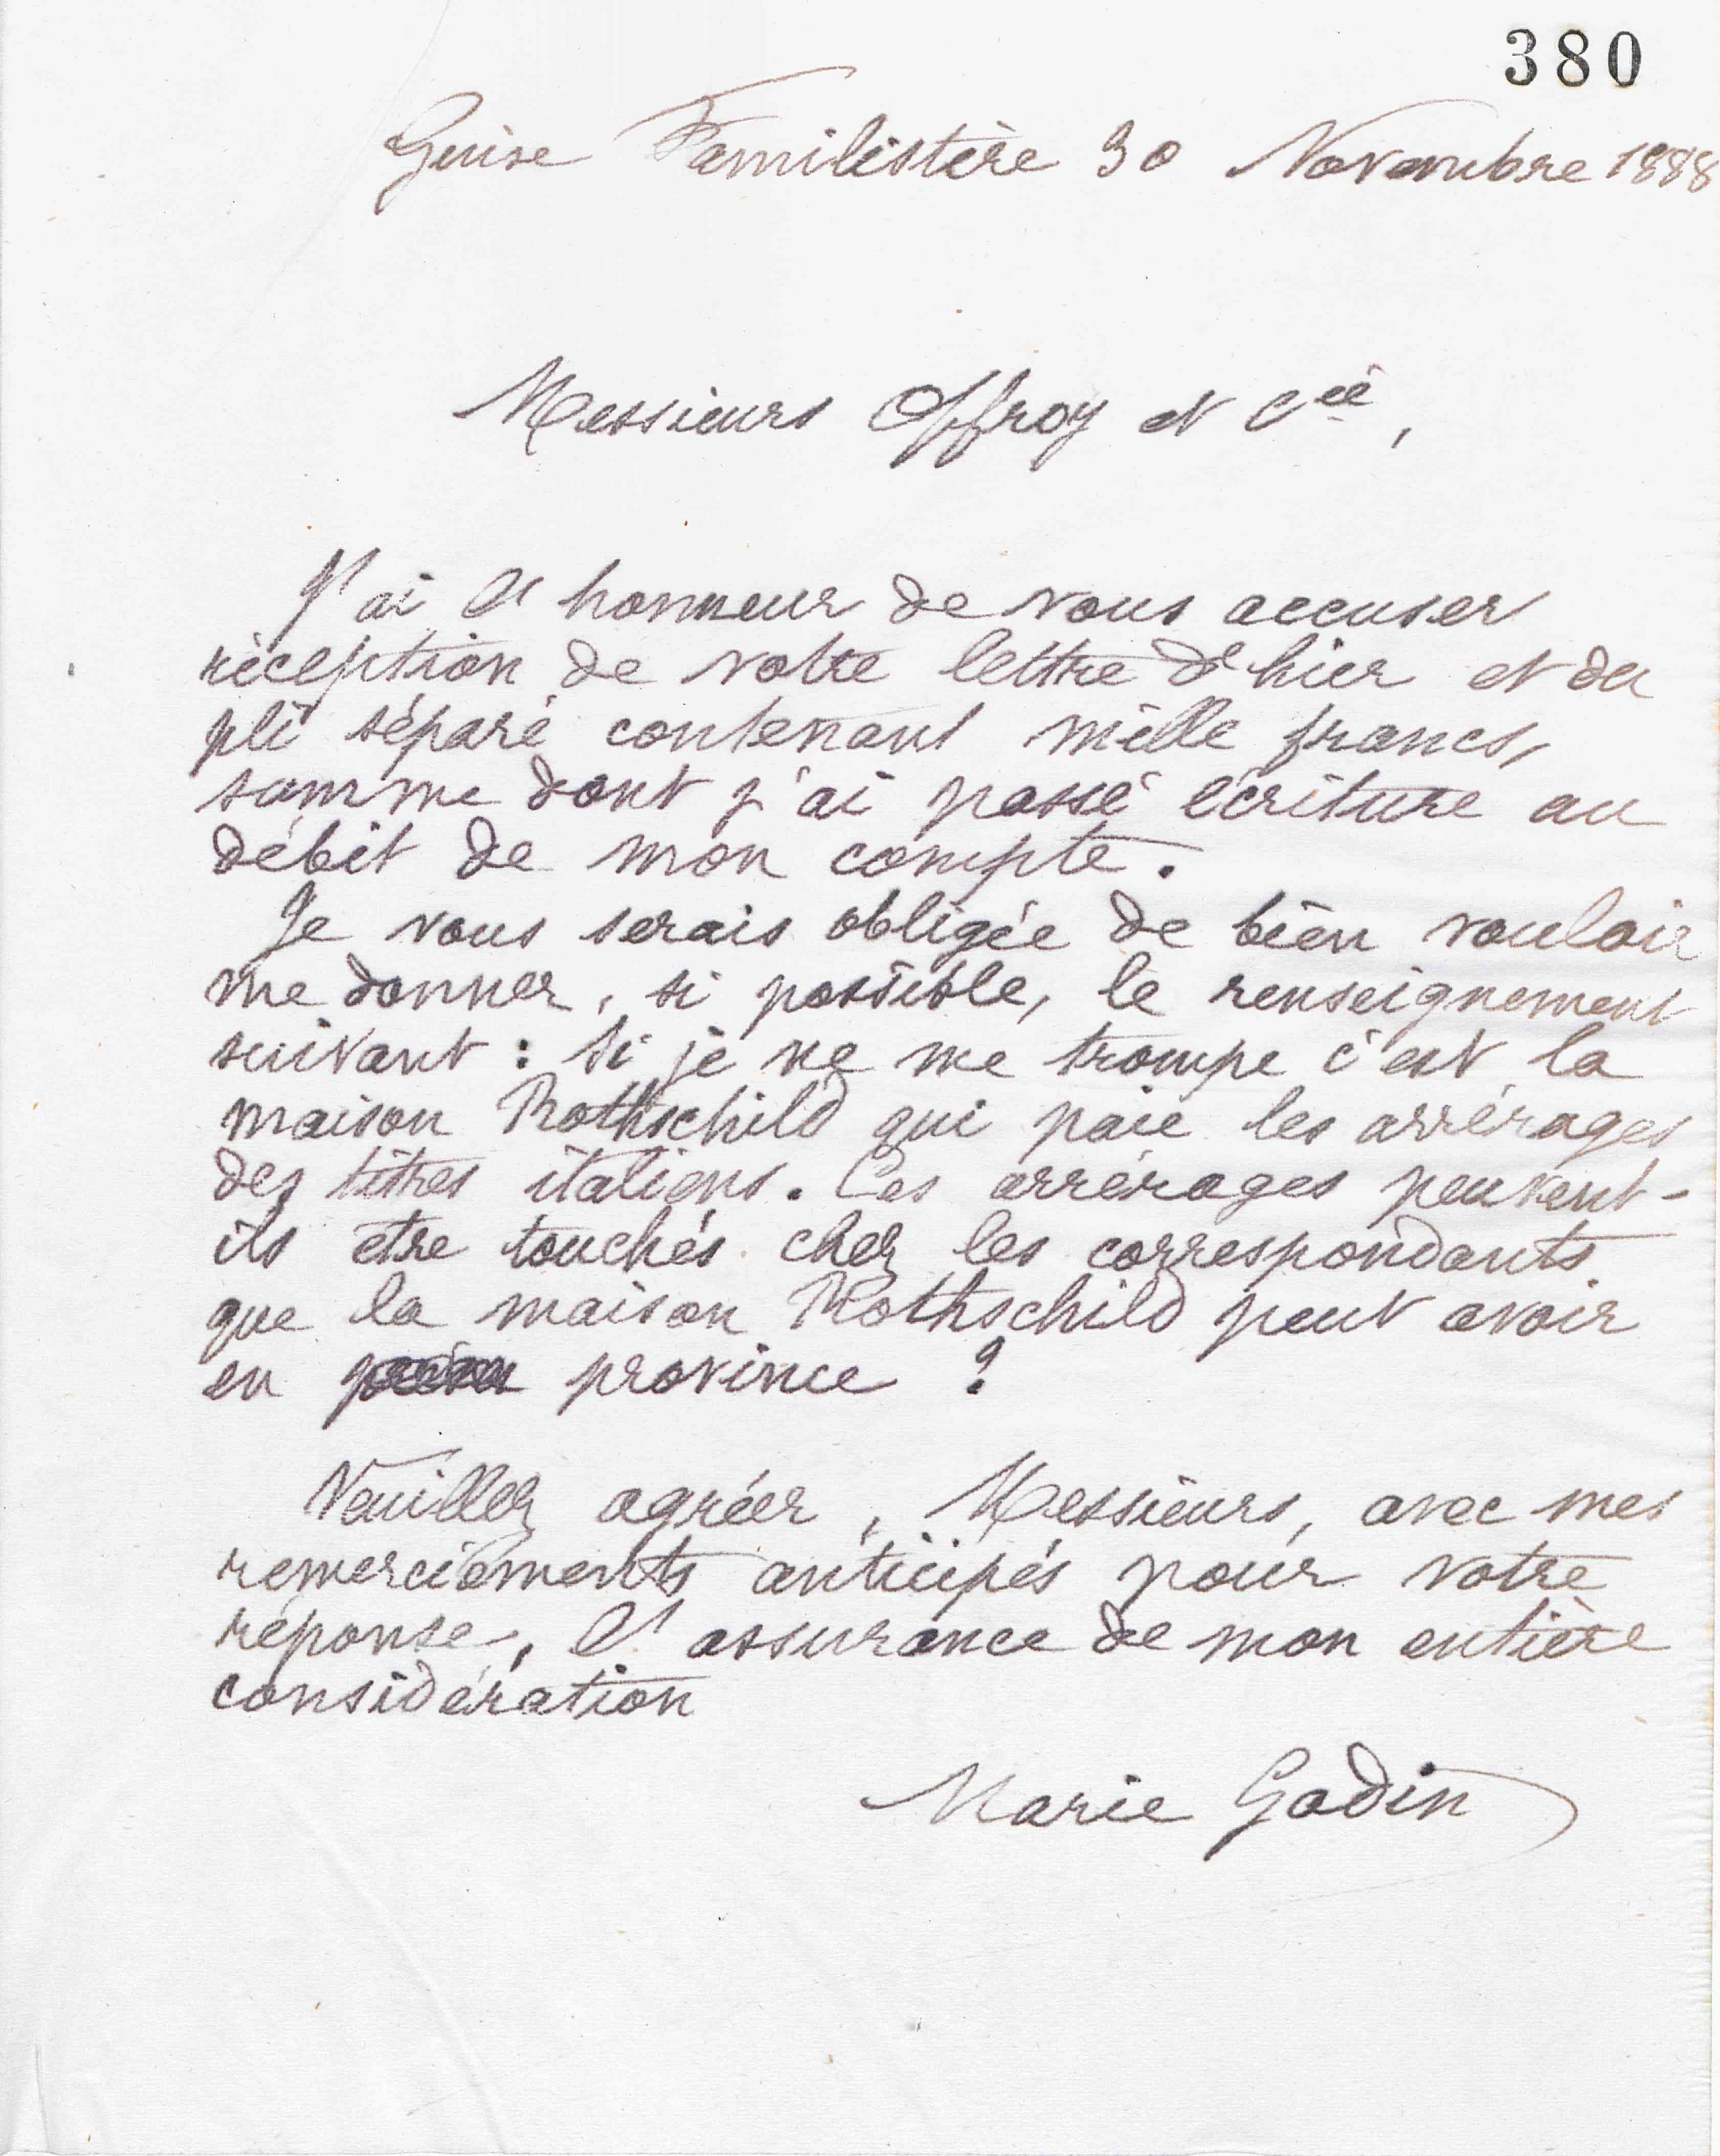 380
Guise Familistère 30 Novembre 1888
Messieurs Offroy et Cie,
J'ai l'honneur de vous accuser
réception de votre lettre d'hier et du
pli séparé contenant mille francs,
somme dont j'ai passé écriture au
débit de mon compte.
Je vous serais obligée de bien vouloir
me donner, si possible, le renseignement
suivant : si je ne me trompe c'est la
maison Rothschild qui paie les arrérages
des titres italiens. Ces arrérages peuvent-
ils être touchés chez les correspondants
que la maison Rothschild peut avoir
en province ?
Veuillez agréer, Messieurs, avec mes
remerciements anticipés pour votre
réponse, l'assurance de mon entière
considération
Marie Godin